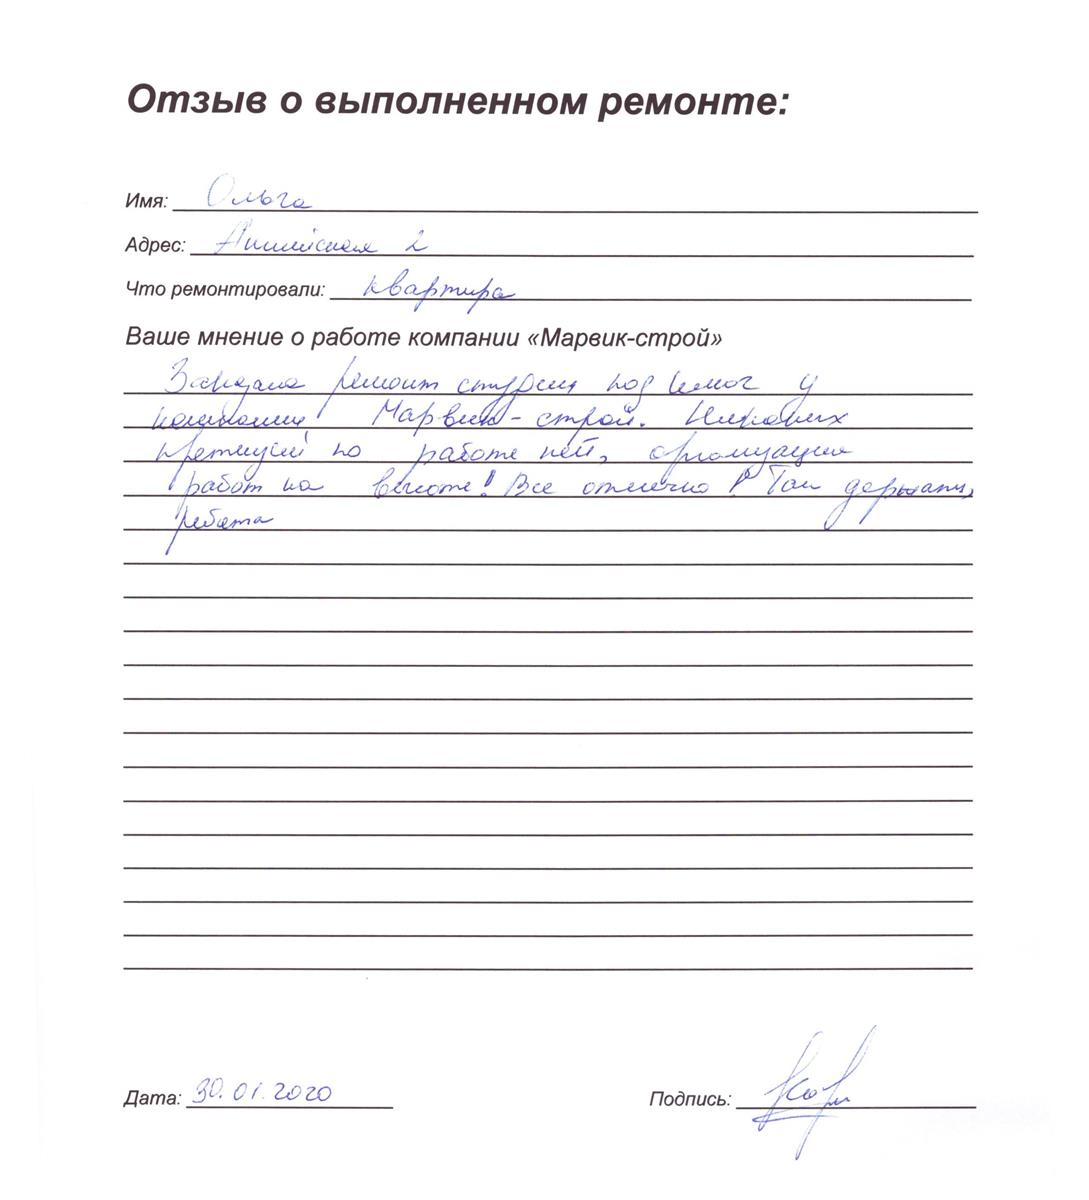 Отзыв о выполненном ремонте:
Имя: Ольга
Адрес: Английская 2
Что ремонтировали: квартира
Ваше мнение о работе компании «Марвик-строй»
Заказала ремонт студии под ключ у
компании Марвик-строй. Никаких
претензий по работе нет, организация
работ на высоте! Все отлично! Так держать,
ребята
Дата: 30.01.2020
Подпись: